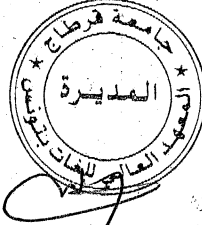 جامعة قرطاج
المديرة
المعهد العالي للغات بتونس